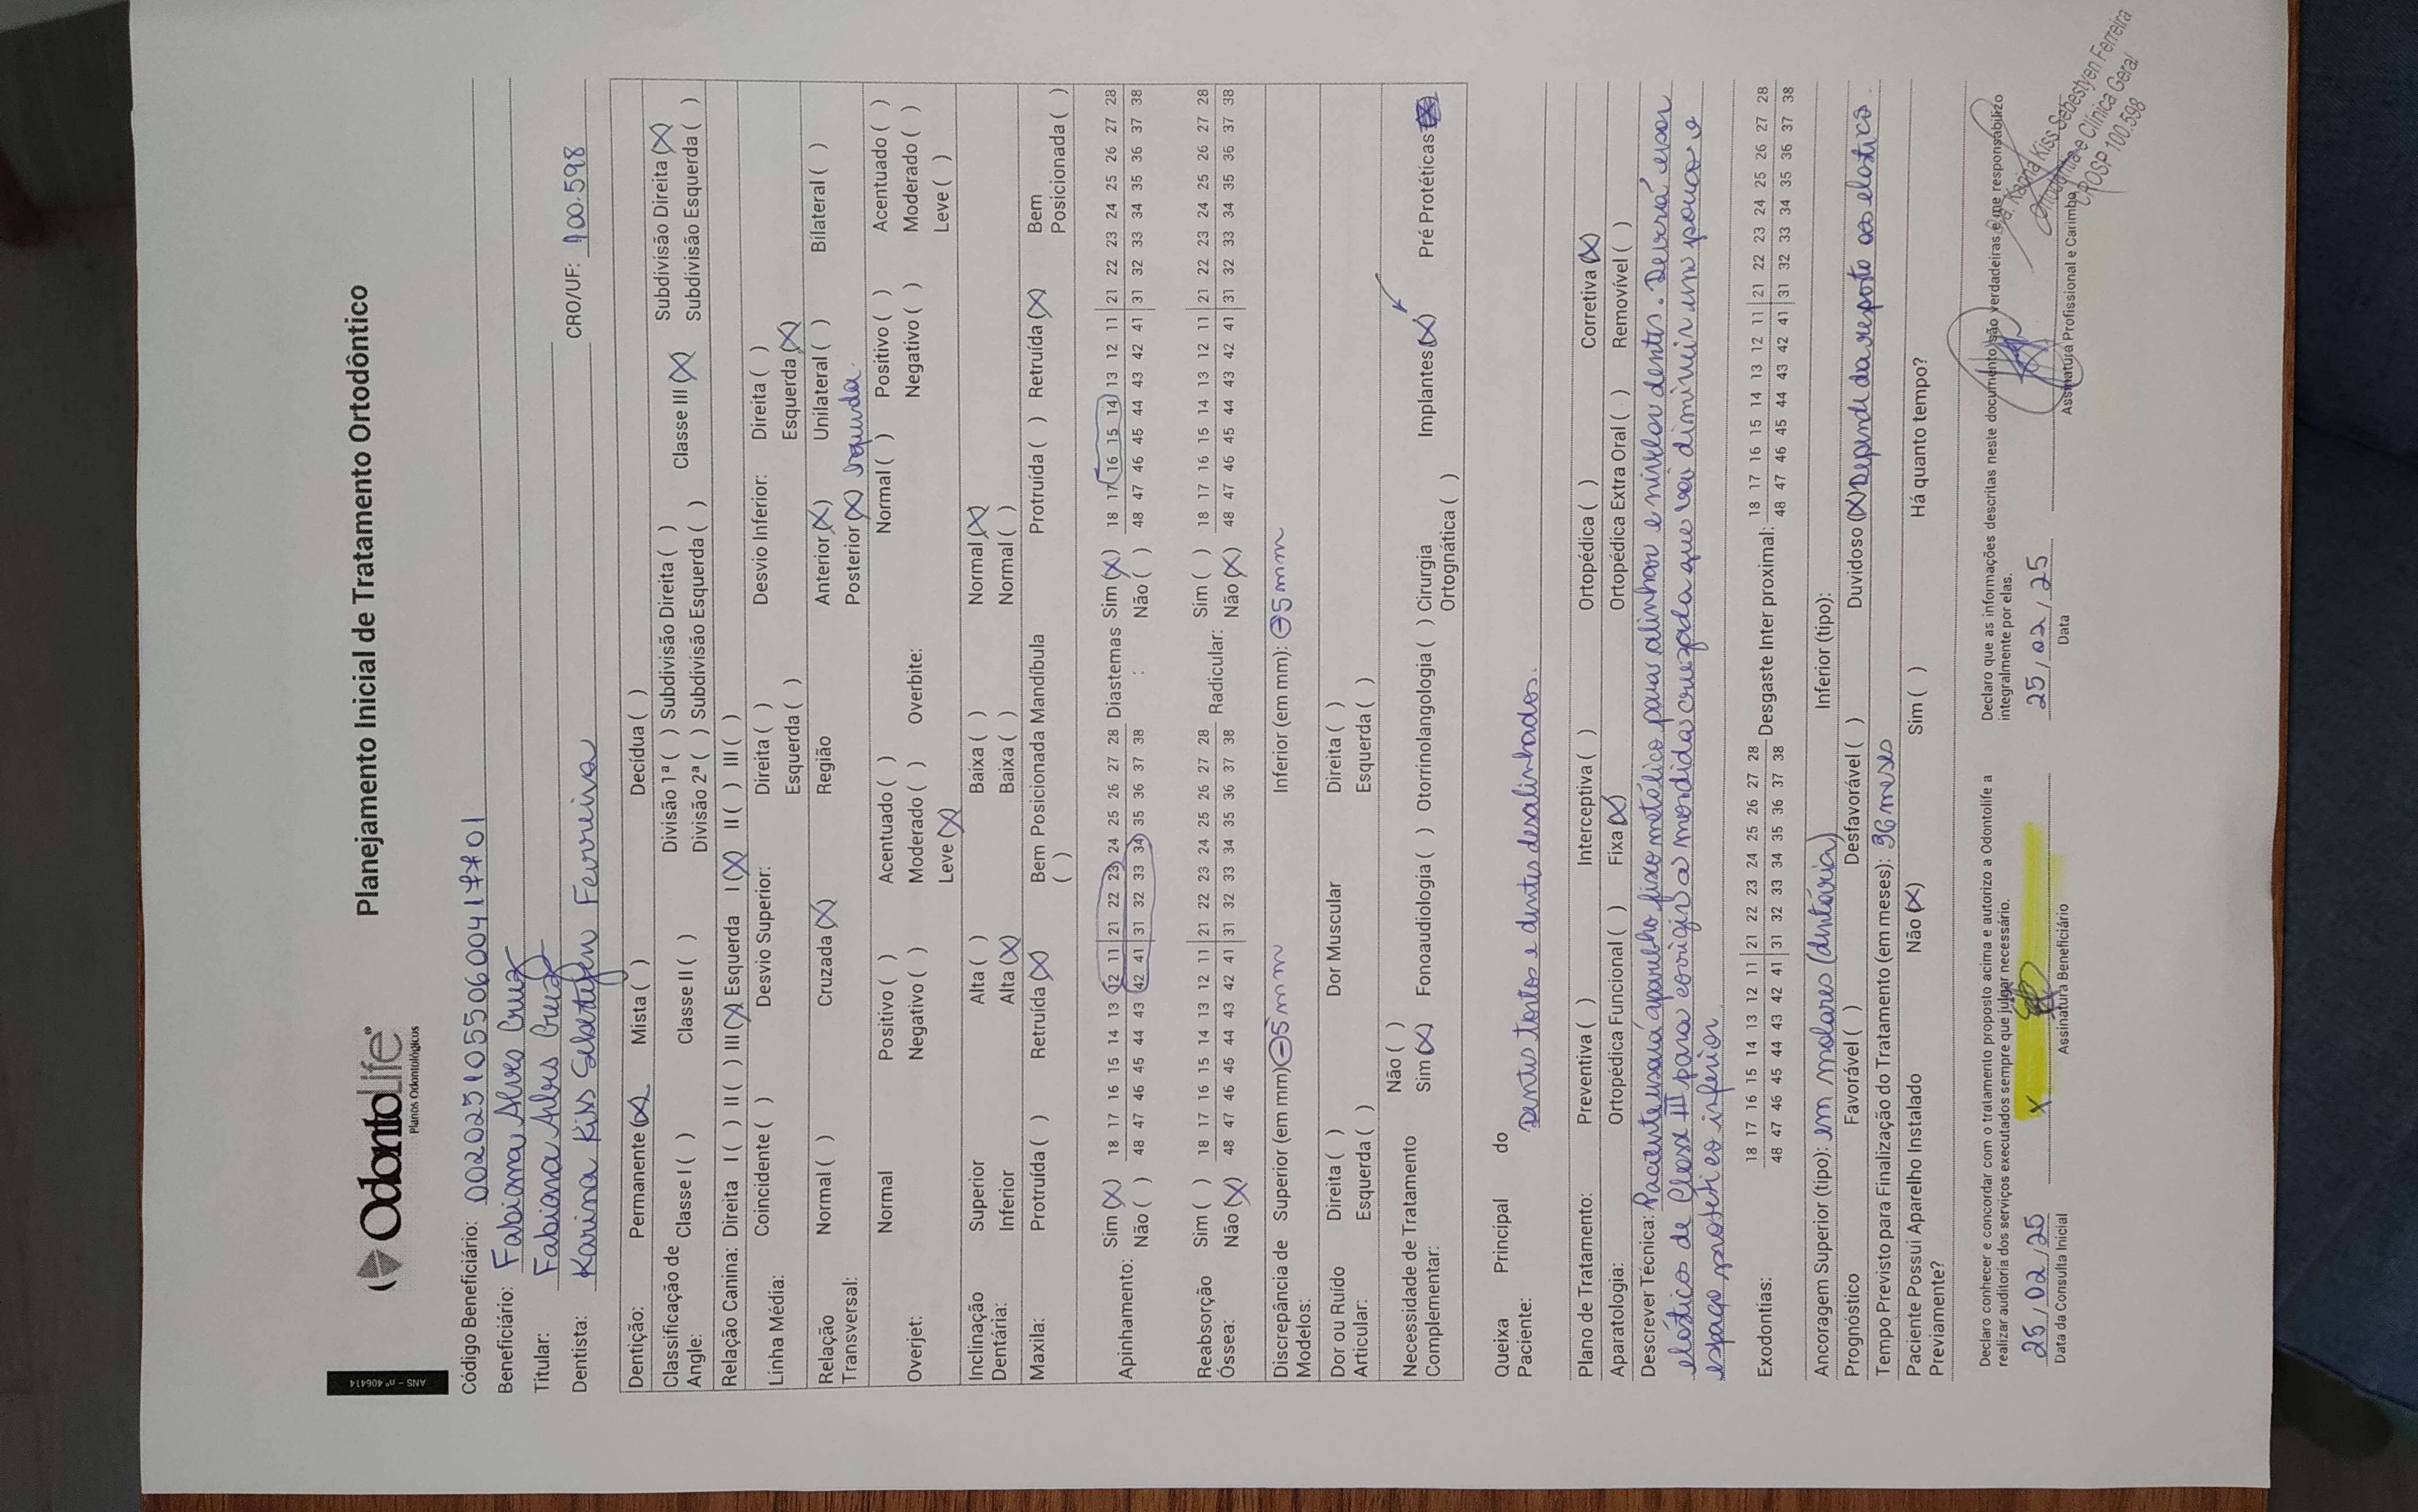 ANS - nº 406414
OdontoLife®
Planos Odontológicos
Planejamento Inicial de Tratamento Ortodôntico
Código Beneficiário: 00202510550600417701
Beneficiário: Fabiana Alves Cruz
Titular: Fabiana Alves Cruz
Dentista: Karina Kiss Sebestyen Ferreira CRO/UF: 100.598
Dentição: Permanente (X) Mista ( ) Decídua ( )
Classificação de Angle: Classe I ( ) Classe II ( ) Divisão 1ª ( ) Subdivisão Direita ( ) Classe III (X) Subdivisão Direita (X)
Divisão 2ª ( ) Subdivisão Esquerda ( ) Subdivisão Esquerda ( )
Relação Canina: Direita I ( ) II ( ) III (X) Esquerda I (X) II ( ) III ( )
Linha Média: Coincidente ( ) Desvio Superior: Direita ( ) Desvio Inferior: Direita ( )
Esquerda ( ) Esquerda (X)
Relação Transversal: Normal ( ) Cruzada (X) Região Anterior (X) Unilateral ( ) Bilateral ( )
Posterior (X) esquerda.
Overjet: Normal Positivo ( ) Acentuado ( ) Overbite: Normal ( ) Positivo ( ) Acentuado ( )
Negativo ( ) Moderado ( ) Negativo ( ) Moderado ( )
Leve (X) Leve ( )
Inclinação Dentária: Superior Alta ( ) Baixa ( ) Normal (X)
Inferior Alta (X) Baixa ( ) Normal ( )
Maxila: Protruída ( ) Retruída (X) Bem Posicionada ( ) Mandíbula Protruída ( ) Retruída (X) Bem Posicionada ( )
Apinhamento: Sim (X) 18 17 16 15 14 13 12 11 21 22 23 24 25 26 27 28 Diastemas : Sim (X) 18 17 16 15 14 13 12 11 21 22 23 24 25 26 27 28
Não ( ) 48 47 46 45 44 43 42 41 31 32 33 34 35 36 37 38 Não ( ) 48 47 46 45 44 43 42 41 31 32 33 34 35 36 37 38
Reabsorção Óssea: Sim ( ) 18 17 16 15 14 13 12 11 21 22 23 24 25 26 27 28 Radicular: Sim ( ) 18 17 16 15 14 13 12 11 21 22 23 24 25 26 27 28
Não (X) 48 47 46 45 44 43 42 41 31 32 33 34 35 36 37 38 Não (X) 48 47 46 45 44 43 42 41 31 32 33 34 35 36 37 38
Discrepância de Modelos: Superior (em mm) -5mm Inferior (em mm): -5mm
Dor ou Ruído Articular: Direita ( ) Dor Muscular Direita ( )
Esquerda ( ) Esquerda ( )
Necessidade de Tratamento Complementar: Não ( )
Sim (X) Fonoaudiologia ( ) Otorrinolangologia ( ) Cirurgia Ortognática ( ) Implantes (X) Pré Protéticas
Queixa Principal do Paciente: Dentes tortos e dentes desalinhados.
Plano de Tratamento: Preventiva ( ) Interceptiva ( ) Ortopédica ( ) Corretiva (X)
Aparatologia: Ortopédica Funcional ( ) Fixa (X) Ortopédica Extra Oral ( ) Removível ( )
Descrever Técnica: Paciente usará aparelho fixo metálico para alinhar e nivelar dentes. Deverá usar
elástico de Classe III para corrigir a mordida cruzada que vai diminuir um pouco o
espaço protético inferior.
Exodontias: 18 17 16 15 14 13 12 11 21 22 23 24 25 26 27 28 Desgaste Inter proximal: 18 17 16 15 14 13 12 11 21 22 23 24 25 26 27 28
48 47 46 45 44 43 42 41 31 32 33 34 35 36 37 38 48 47 46 45 44 43 42 41 31 32 33 34 35 36 37 38
Ancoragem Superior (tipo): em molares (dentária) Inferior (tipo):
Prognóstico Favorável ( ) Desfavorável ( ) Duvidoso (X) Depende da resposta aos elásticos.
Tempo Previsto para Finalização do Tratamento (em meses): 36 meses
Paciente Possui Aparelho Instalado Previamente? Não (X) Sim ( ) Há quanto tempo?
Declaro conhecer e concordar com o tratamento proposto acima e autorizo a Odontolife a
realizar auditoria dos serviços executados sempre que julgar necessário.
Declaro que as informações descritas neste documento são verdadeiras e me responsabilizo
integralmente por elas.
25/02/25 X 25/02/25
Data da Consulta Inicial Assinatura Beneficiário Data Assinatura Profissional e Carimbo
Dra. Karina Kiss Sebestyen Ferreira
Ortodontia e Clínica Geral
CROSP 100.598